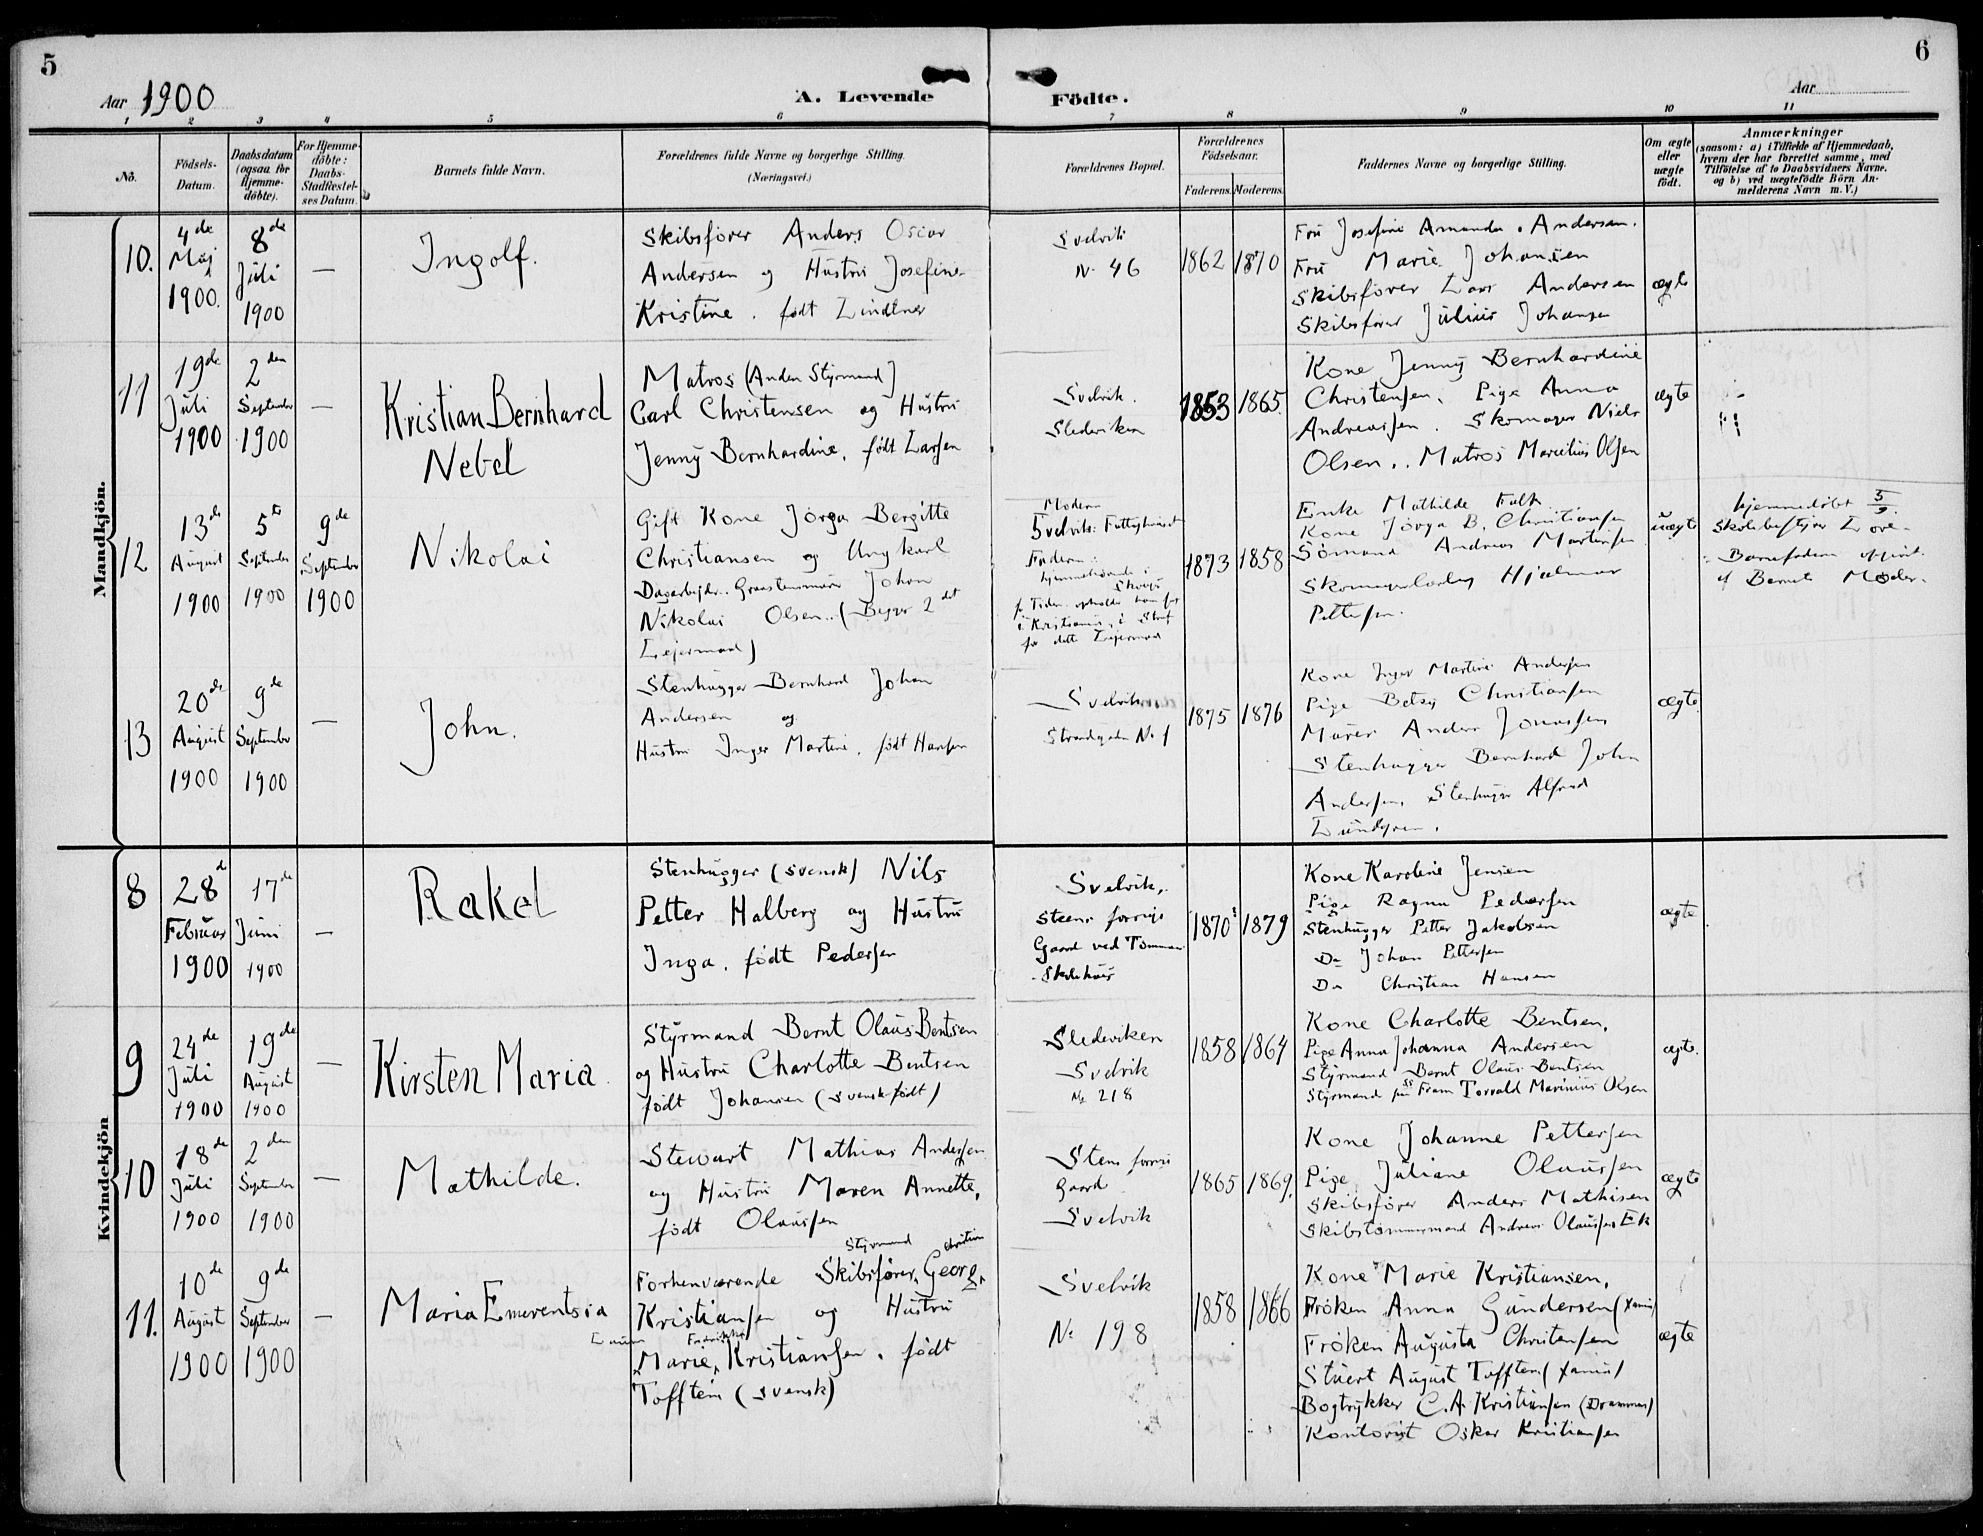 5
6
Aar 1900
A. Levende
Födte.
Aar
1 2 3 4 5 6 7 8 9 10 11
No.
Födsels-Datum.
Daabsdatum (ogsaa for Hjemme-döbte).
For Hjemme-döbte: Daabs-Stadfæstel-ses Datum.
Barnets fulde Navn.
Forældrenes fulde Navne og borgerlige Stilling. (Næringsvei.)
Forældrenes Bopæl.
Forældrenes Födselsaar.
Faderens. Moderens.
Faddernes Navne og borgerlige Stilling.
Om ægte eller uægte født.
Anmærkninger
(saasom: a) i Tilfælde af Hjemmedaab,
hvem der har forrettet samme, med
Tilföielse af to Daabsvidners Navne,
og b) ved uægtefödte Börn An-
melderens Navn m. V.)
Mandkjön.
10.
4de Maj 1900.
8de Juli 1900
—
Ingolf.
Skibsfører Anders Oscar
Andersen og Hustru Josefine
Kristine. født Lindtner
Svelvik
N. 46
1862
1870
Fru Josefine Amanda Andersen.
Fru Marie Johansen
Skibsfører Lars Andersen
Skibsfører Julius Johansen
ægte
11
19de Juli 1900
2den September 1900
—
Kristian Bernhard
Nebel
Matros (Anden Styrmand)
Carl Christensen og Hustru
Jenny Bernhardine, født Larsen
Svelvik.
Sledeviken
1853
1865.
Kone Jenny Bernhardine
Christensen, Pige Anna
Andreassen. Skomager Niels
Olsen.. Matros Marelius Olsen
ægte
12
13de August 1900
5te September 1900
9de September 1900
Nikolai
Gift Kone Jørga Bergitte
Christiansen og Ungkarl
Dagarbejder. Johan
Nikolai Olsen.. (Begges 2det
Lejermaal)
Moderen
Svelvik: Fattighuset
Faderen:
hjemmehørende i
Skoger
i Kristiania, i Straf
for dette Lejermaal
1873
1858
Enke Mathilde Falk
Kone Jørga B. Christiansen
Sømand Andreas Martinsen
Skomagerlærling Hjalmar
Pettersen.
uægte
hjemmedøbt 5/9.
Skolebestyrer
Barnefaderen opgivet
af Barnets Moder.
13
20de August 1900
9de September 1900
—
John.
Stenhugger Bernhard Johan
Andersen og
Hustru Inger Martine, født Hansen
Svelvik
Strandgaden No 1
1875
1876
Kone Inger Martine Andersen
Pige Betsy Christiansen
Murer Anders Jonassen
Stenhugger Bernhard John
Andersen, Stenhugger Alfred
Lundgren.
ægte.
Kvindekjön
8
28de Februar 1900
17de Juni 1900
—
Rakel
Stenhugger (svensk) Nils
Petter Halberg og Hustru
Inga, født Pedersen
Svelvik,
Steens forrige
Gaard ved Tømmer-
1870
1879
Kone Karoline Jensen
Pige Ragna Pedersen
Stenhugger Petter Jakobsen
Do Johan Pettersen
Do Christian Hansen
ægte
9
24de Juli 1900
19de August 1900
—
Kirsten Maria.
Styrmand Bernt Olaus Bentsen
og Hustru Charlotte Bentsen
født Johansen (svensk født)
Sledeviken
Svelvik
No 218
1858
1864
Kone Charlotte Bentsen,
Pige Anna Johanna Andersen
Styrmand Bernt Olaus Bentsen
Styrmand paa SS Fram Torvald Marinius Olsen
ægte.
10
18de Juli 1900
2den September 1900
—
Mathilde.
Stewart Mathias Andersen
og Hustru Maren Annette,
født Olaussen
Stens forrige
Gaard
Svelvik
1865
1869.
Kone Johanne Pettersen
Pige Juliane Olaussen
Skibsfører Anders Mathisen
Skibstømmermand Andreas Olaussen Ek
ægte
11.
10de August 1900
9de September 1900
—
Maria Emerentsia
Styrmand Christian
Forhenværende Skibsfører, Georg
Kristiansen og Hustru
Fredrikke
Marie, Kristiansen. født
Tofftén (svensk)
Svelvik
No 198
1858
1866
Kone Marie Kristiansen,
Frøken Anna Gundersen
Frøken Augusta Christensen
Stuert August Tofften
Bogtrykker C. A. Kristiansen (Drammen)
Kontorist Oskar Kristiansen
ægte